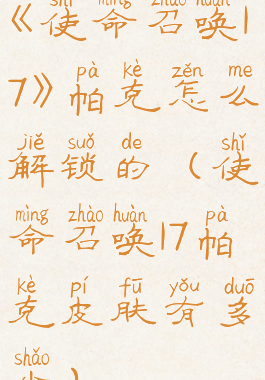 shǐ mìng zhào huàn
《使命召唤1
pà kè zěn me
7》帕克怎么
jiě suǒ de shǐ
解锁的（使
mìng zhào huàn pà
命召唤17帕
kè pí fū yǒu duō
克皮肤有多
shǎo
少）